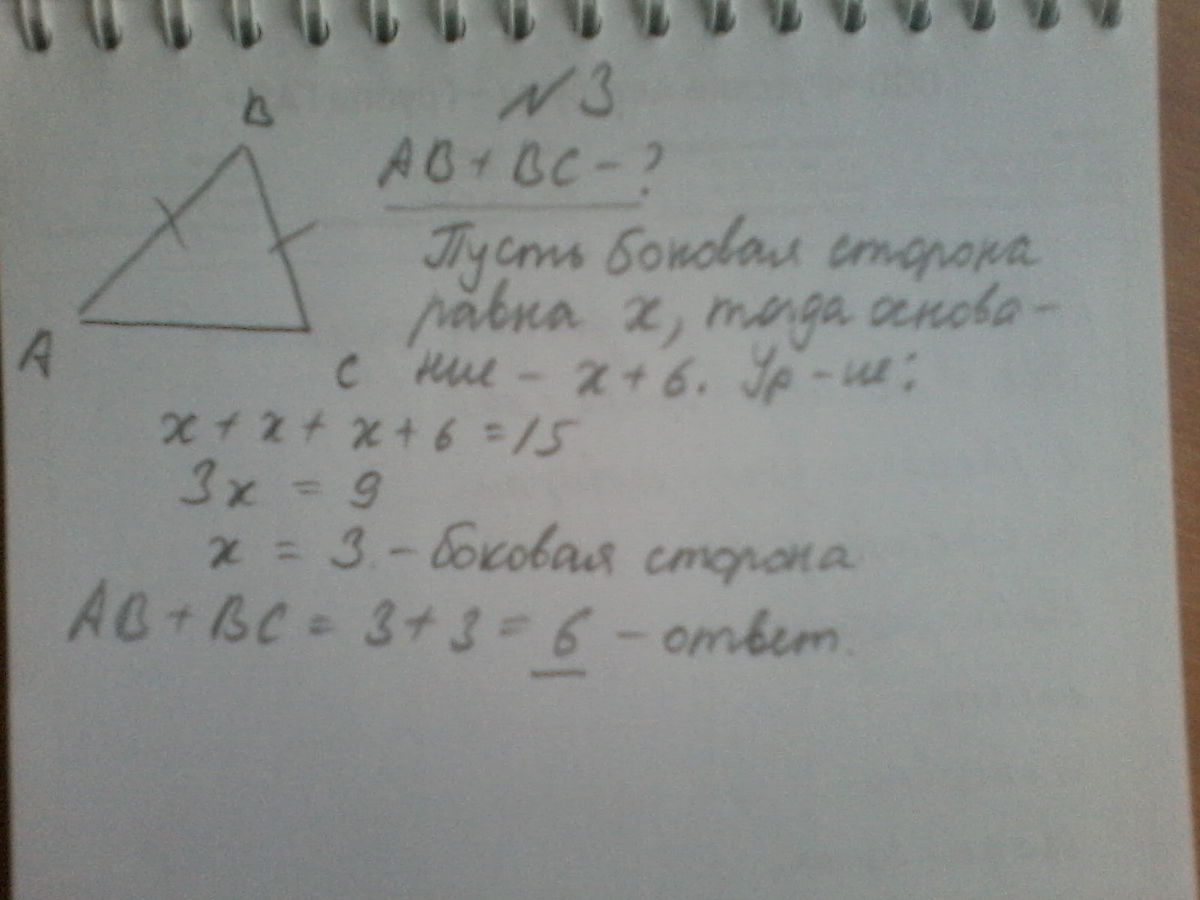 №3
B
AB + BC - ?
Пусть боковая сторона
равна x, тогда основа-
A
C
ние - x + 6. Ур-ие:
x + x + x + 6 = 15
3x = 9
x = 3 - боковая сторона
AB + BC = 3 + 3 = 6 - ответ.